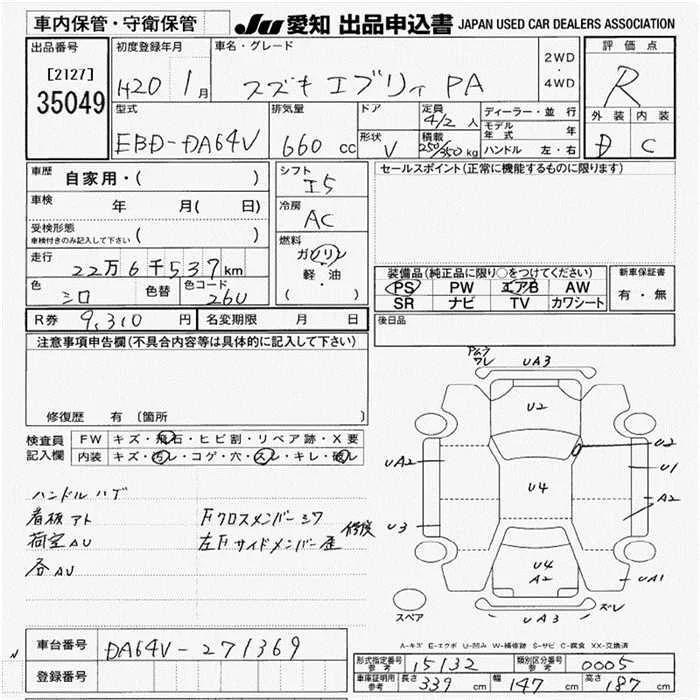 車内保管・守衛保管
JU 愛知 出品申込書 JAPAN USED CAR DEALERS ASSOCIATION
出品番号
[2127]
35049
初度登録年月
H20 1月
車名・グレード
スズキ エブリィ PA
2WD
・
4WD
評価点
R
外装 内装
D C
型式
EBD-DA64V
排気量
660 cc
ドア
形状
V
定員
4/2 人
積載
250/350 kg
ディーラー・並行
モデル年式 年
ハンドル 左・右
車歴 自家用・( )
車検 年 月( 日)
受検形態
車検付きのみ記入して下さい ( )
走行
22万6千537km
色 シロ 色替
色コード
26U
シフト
I5
冷房
AC
燃料
ガソリン
軽・油
( )
セールスポイント(正常に機能するものに限ります)
装備品(純正品に限り○をつけてください)
PS PW エアB AW
SR ナビ TV カワシート
新車保証書
有・無
R券 9,310 円 名変期限 月 日
後日品
注意事項申告欄(不具合内容等は具体的に記入して下さい)
修復歴 有 〔箇所
検査員
記入欄
FW キズ・飛石・ヒビ割・リペア跡・X要
内装 キズ・汚レ・コゲ・穴・スレ・キレ・破レ
ハンドル ハゲ
看板アト
荷室AU
各AU
Fクロスメンバーシワ
左Fサイドメンバー歪
修復
ワレ
UA3
U2
U2
UA2
U1
U4
A2
U3
U4
A2
UA1
UA3
ズレ
スペア
A-キズ E-エクボ U-凹み W-補修跡 S-サビ C-腐食 XX-交換済
車台番号 DA64V-271369
登録番号
形式指定番号
参考
15132
類別区分番号
参考
0005
車庫証明用
参考
長さ 339 cm 幅 147 cm 高さ 187 cm